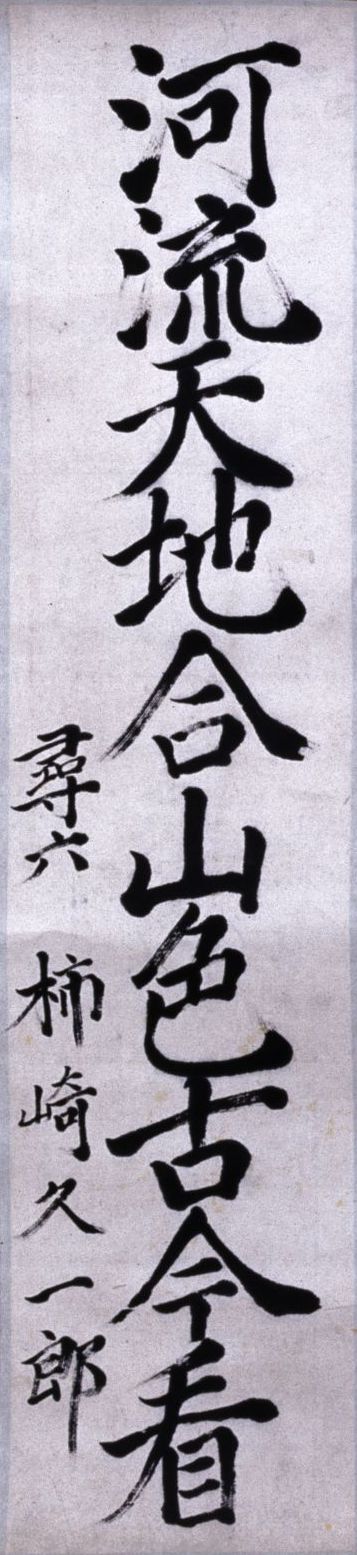 河流天地合山色古今看
尋六 柿崎久一郎